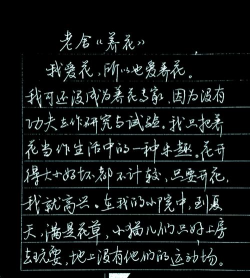 老舍《养花》
我爱花，所以也爱养花。
我可还没成为养花专家，因为没有
功夫去作研究与试验。我只把养
花当作生活中的一种乐趣，花开
得大小好坏都不计较，只要开花，
我就高兴。在我的小院中，到夏
天，满是花草，小猫儿们只好上房
去玩耍，地上没有他们的运动场。